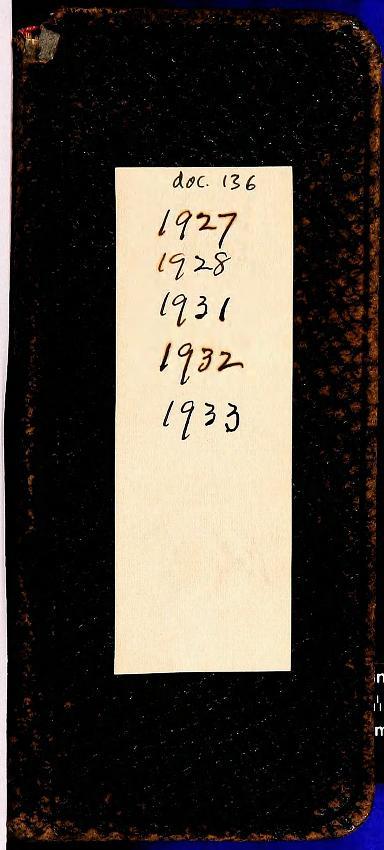 doc. 136
1927
1928
1931
1932
1933